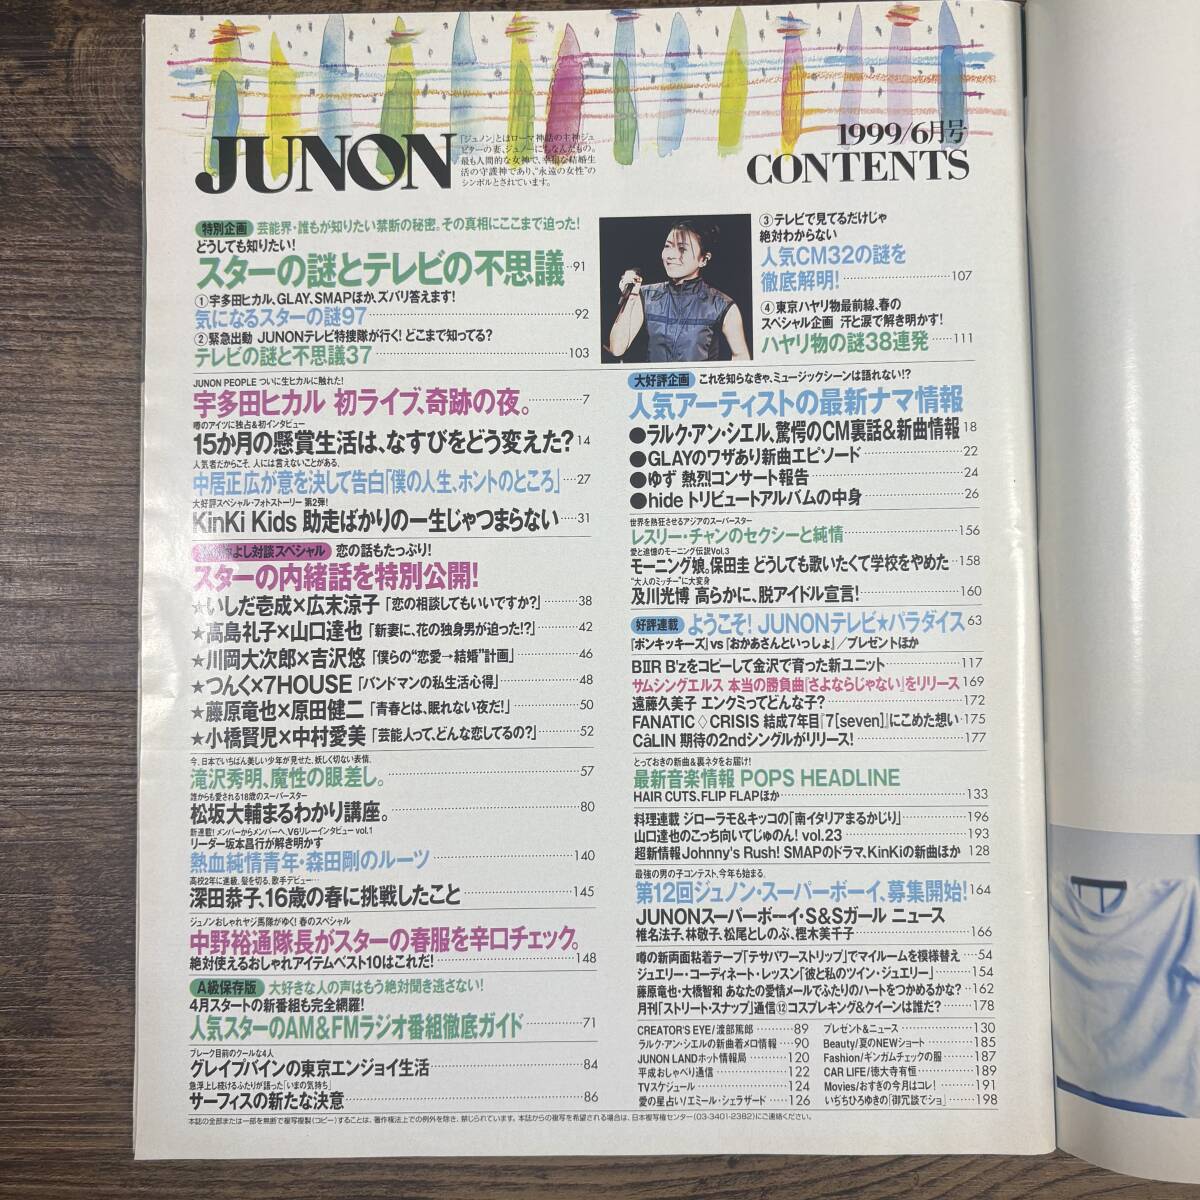 JUNON
「ジュノン」とはローマ神話の主神ジュ
ピターの妻、ジュノーにちなんだもの。
最も人間的な女神で、幸福な結婚生
活の守護神であり、"永遠の女性"の
シンボルとされています。
1999/6月号
CONTENTS
特別企画 芸能界・誰もが知りたい禁断の秘密。その真相にここまで迫った!
どうしても知りたい!
スターの謎とテレビの不思議 91
①宇多田ヒカル、GLAY、SMAPほか、ズバリ答えます!
気になるスターの謎97 92
②緊急出動 JUNONテレビ特捜隊が行く! どこまで知ってる?
テレビの謎と不思議37 103
③テレビで見てるだけじゃ
絶対わからない
人気CM32の謎を
徹底解明! 107
④東京ハヤリ物最前線、春の
スペシャル企画 汗と涙で解き明かす!
ハヤリ物の謎38連発 111
JUNON PEOPLE ついに生ヒカルに触れた!
宇多田ヒカル 初ライブ、奇跡の夜。 7
噂のアイツに独占&初インタビュー
15か月の懸賞生活は、なすびをどう変えた? 14
人気者だからこそ、人には言えないことがある。
中居正広が意を決して告白「僕の人生、ホントのところ」 27
大好評スペシャル・フォトストーリー 第2弾!
KinKi Kids 助走ばかりの一生じゃつまらない 31
よし対談スペシャル 恋の話もたっぷり!
スターの内緒話を特別公開!
★いしだ壱成×広末涼子「恋の相談してもいいですか?」 38
★高島礼子×山口達也「新妻に、花の独身男が迫った!?」 42
★川岡大次郎×吉沢悠「僕らの"恋愛→結婚"計画」 46
★つんく×7HOUSE「バンドマンの私生活心得」 48
★藤原竜也×原田健二「青春とは、眠れない夜だ!」 50
★小橋賢児×中村愛美「芸能人って、どんな恋してるの?」 52
今、日本でいちばん美しい少年が見せた、妖しく切ない表情。
滝沢秀明、魔性の眼差し。 57
誰からも愛される18歳のスーパースター
松坂大輔まるわかり講座。 80
新連載! メンバーからメンバーへ、V6リレーインタビュー vol.1
リーダー坂本昌行が解き明かす
熱血純情青年・森田剛のルーツ 140
高校2年に進級、髪を切る、歌手デビュー…
深田恭子、16歳の春に挑戦したこと 145
ジュノンおしゃれヤジ馬隊がゆく! 春のスペシャル
中野裕通隊長がスターの春服を辛口チェック。
絶対使えるおしゃれアイテムベスト10はこれだ! 148
A級保存版 大好きな人の声はもう絶対聞き逃さない!
4月スタートの新番組も完全網羅!
人気スターのAM&FMラジオ番組徹底ガイド 71
ブレーク目前のクールな4人
グレイプバインの東京エンジョイ生活 84
急浮上し続けるふたりが語った「いまの気持ち」
サーフィスの新たな決意 86
大好評企画 これを知らなきゃ、ミュージックシーンは語れない!?
人気アーティストの最新ナマ情報
●ラルク・アン・シエル、驚愕のCM裏話&新曲情報 18
●GLAYのワザあり新曲エピソード 22
●ゆず 熱烈コンサート報告 24
●hide トリビュートアルバムの中身 26
世界を熱狂させるアジアのスーパースター
レスリー・チャンのセクシーと純情 156
愛と追憶のモーニング伝説Vol.3
モーニング娘。保田圭 どうしても歌いたくて学校をやめた 158
"大人のミッチー"に大変身
及川光博 高らかに、脱アイドル宣言! 160
好評連載 ようこそ! JUNONテレビ★パラダイス 63
『ポンキッキーズ』vs『おかあさんといっしょ』/プレゼントほか
BIIR B'zをコピーして金沢で育った新ユニット 117
サムシングエルス 本当の勝負曲『さよならじゃない』をリリース 169
遠藤久美子 エンクミってどんな子? 172
FANATIC◇CRISIS 結成7年目『7[seven]』にこめた想い 175
CâLIN 期待の2ndシングルがリリース! 177
とっておきの新曲&裏ネタをお届け!
最新音楽情報 POPS HEADLINE
HAIR CUTS、FLIP FLAPほか 133
料理連載 ジローラモ&キッコの「南イタリアまるかじり」 196
山口達也のこっち向いてじゅのん! vol.23 193
超新情報Johnny's Rush! SMAPのドラマ、KinKiの新曲ほか 128
最強の男の子コンテスト、今年も始まる。
第12回ジュノン・スーパーボーイ、募集開始! 164
JUNONスーパーボーイ・S&Sガール ニュース
椎名法子、林敬子、松尾としのぶ、樫木美千子 166
噂の新両面粘着テープ「テサパワーストリップ」でマイルームを模様替え 54
ジュエリー・コーディネート・レッスン「彼と私のツイン・ジュエリー」 154
藤原竜也・大橋智和 あなたの愛情メールでふたりのハートをつかめるかな? 162
月刊「ストリート・スナップ」通信⑫コスプレキング&クイーンは誰だ? 178
CREATOR'S EYE/渡部篤郎 89
ラルク・アン・シエルの新曲着メロ情報 90
JUNON LANDホット情報局 120
平成おしゃべり通信 122
TVスケジュール 124
愛の星占い/エミール・シェラザード 126
プレゼント&ニュース 130
Beauty/夏のNEWショート 185
Fashion/ギンガムチェックの服 187
CAR LIFE/徳大寺有恒 189
Movies/おすぎの今月はコレ! 191
いぢちひろゆきの「御冗談でショ」 198
本誌の全部または一部を無断で複写複製(コピー)することは、著作権法上での例外を除き、禁じられています。本誌からの複写を希望される場合は、日本複写権センター(03-3401-2382)にご連絡ください。